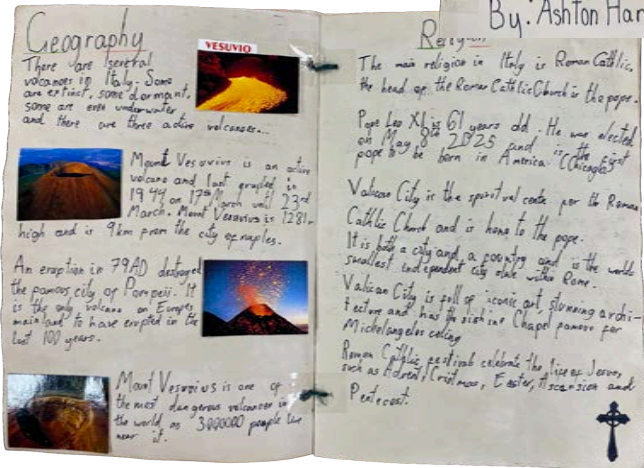 By: Ashton Har
Geography
VESUVIO
There are several
volcanoes in Italy. Some
are extinct, some dormant,
some are even underwater
and there are three active volcanoes...
Mount Vesuvius is an active
volcano and last erupted in
1944 on 17th March until 23rd
March. Mount Vesuvius is 1281m
high and is 9km from the city of naples.
An eruption in 79AD destroyed
the famous city of Pompeii. It
is the only volcano on Europes
mainland to have erupted in the
last 100 years.
Mount Vesuvius is one of
the most dangerous volcanoes in
the world as 3000000 people live
near it.
Religion
The main religion in Italy is Roman Catholic.
the head of the Roman Catholic Church is the pope.
Pope Leo is 61 years old. He was elected
on May 8th 2025 and is the first
pope to be born in America. (Chicago)
Vatican City is the for the Roman
Catholic Church and is home to the pope.
It is both a city and a country and is the worlds
smallest independent city state within Rome.
Vatican City is full of iconic art, stunning archi-
tecture and has the Chapel famous for
Michelangelos ceiling
Roman Catholic festivals celebrate the life of Jesus,
such as Advent, Easter, Ascension and
Pentecost.